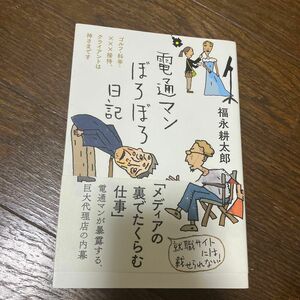 ゴルフ、料亭、
×××接待、
クライアントは
神さまです
電通マン
ぼろぼろ
日記
福永耕太郎
「メディアの
裏でたくらむ
仕事」
電通マンが暴露する、
巨大代理店の内幕
就職サイト
には
載せられない!